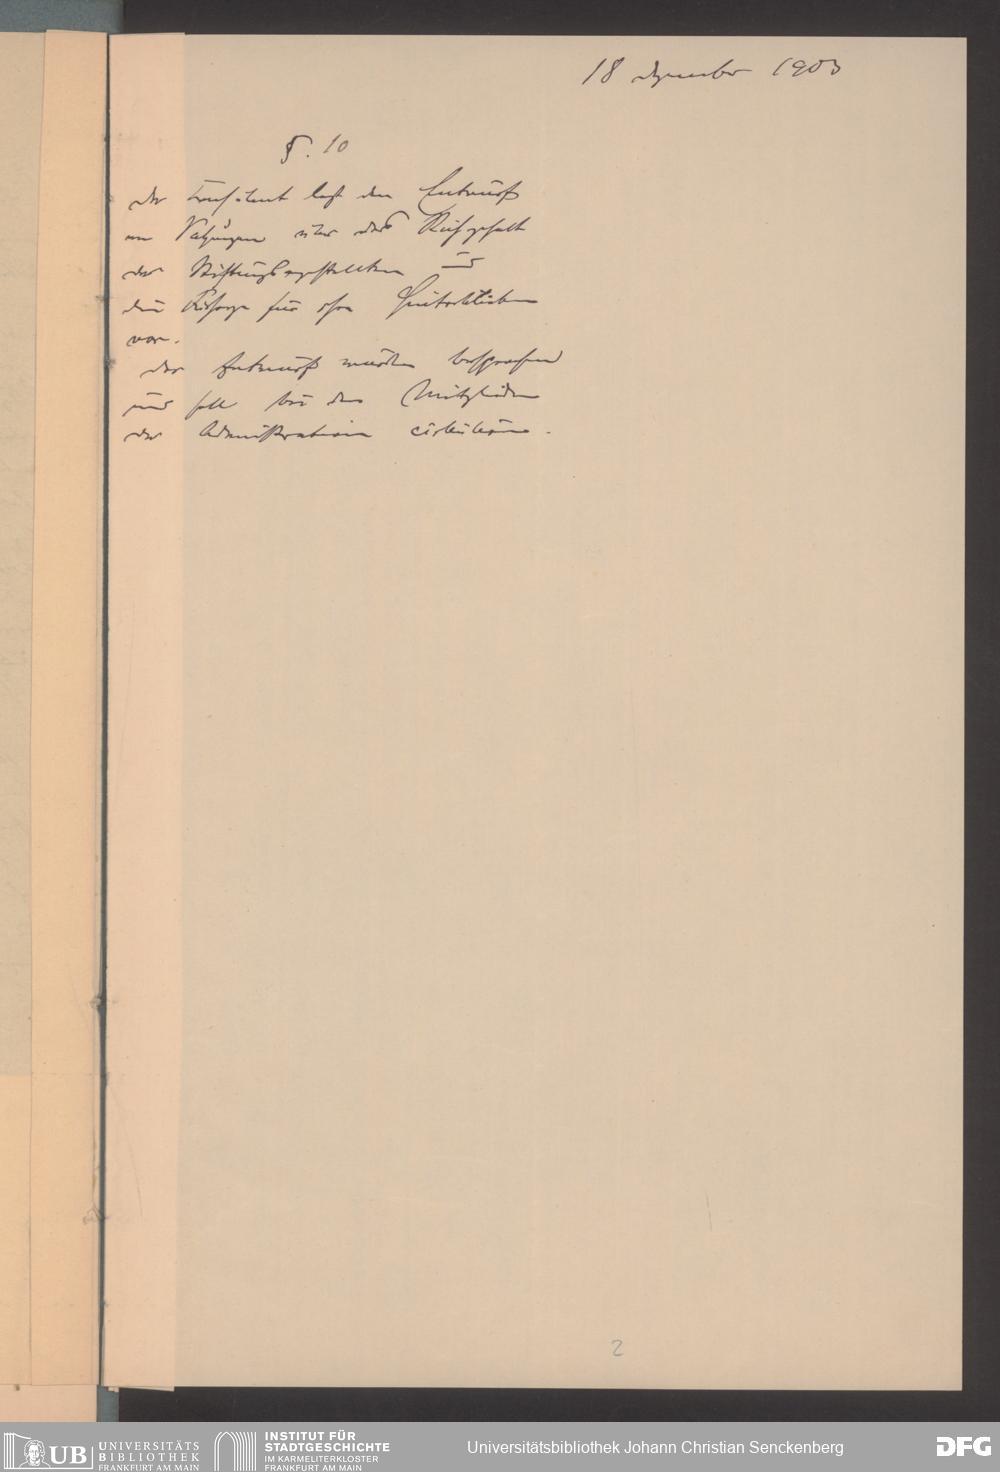 18 Dezember 1903
§. 10
Der Consulent legt den Entwurf
von Satzungen über das Ruhegehalt
der Stiftungsangestellten und
die Fürsorge für ihre Hinterbliebenen
vor.
Der Entwurf wurde besprochen
und soll bei den Mitgliedern
der Administration cirkuliren.
2
UB UNIVERSITÄTS
BIBLIOTHEK
FRANKFURT AM MAIN
INSTITUT FÜR
STADTGESCHICHTE
IM KARMELITERKLOSTER
FRANKFURT AM MAIN
Universitätsbibliothek Johann Christian Senckenberg
DFG